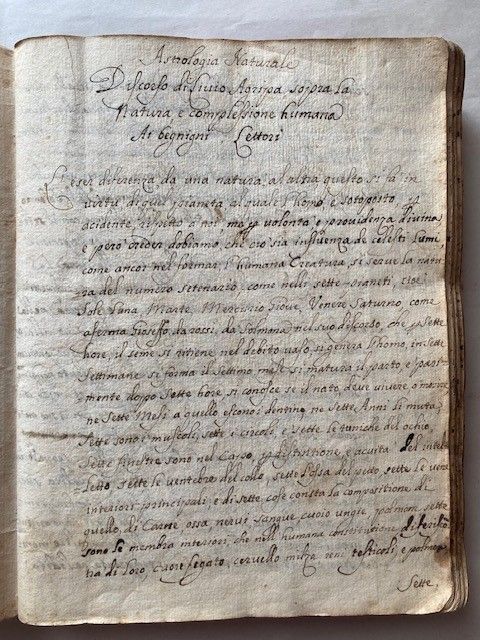 Astrologia Naturale
Discorso di Livio Agripa sopra la
Natura, e complessione humana
Ai begnigni Lettori
Esser diferenza da una natura al altra questo si fa in
virtu di quel pianeta al quale l'homo è sotoposto p
acidente rispetto a noi ma p volonta e providenza divina
e però creder dobiamo, che ciò sia influenza de celesti lumi,
come ancor nel formar l'humana Creatura, si serve la natu
ra del numero setenario, come nelli sette pianeti, cioè
Sole Luna, Marte, Mercurio Giove, Venere Saturno, come
aferma Gioseffo da rossi, da Sulmona nel suo discorso, che p Sette
hore, il seme si ritiene nel debito vaso si genera l'homo, in sette
Settimane si forma il Settimo mese si matura il parto, e pari=
mente dopo Sette hore si conosce se il nato deve vivere o morire
ne Sette Mesi a quello escono i denti, ne Sette Anni si muta,
Sette sono i muscoli, sette i circoli, e Sette le tuniche del ochio
Sette finestre sono nel Capo, p distintione, e acuita del intel=
letto sette le ventebre del collo, sette l'ossa del petto sette le vene
interiori principali, e di sette cose consta la compositione di
quello, di Carne ossa nervi Sangue, cuoio ungie polmon, sette
sono le membra interiori, che nell humana constitutione
tia di loro, cuore fegato, cervello milza reni testicoli, e polmon
Sette